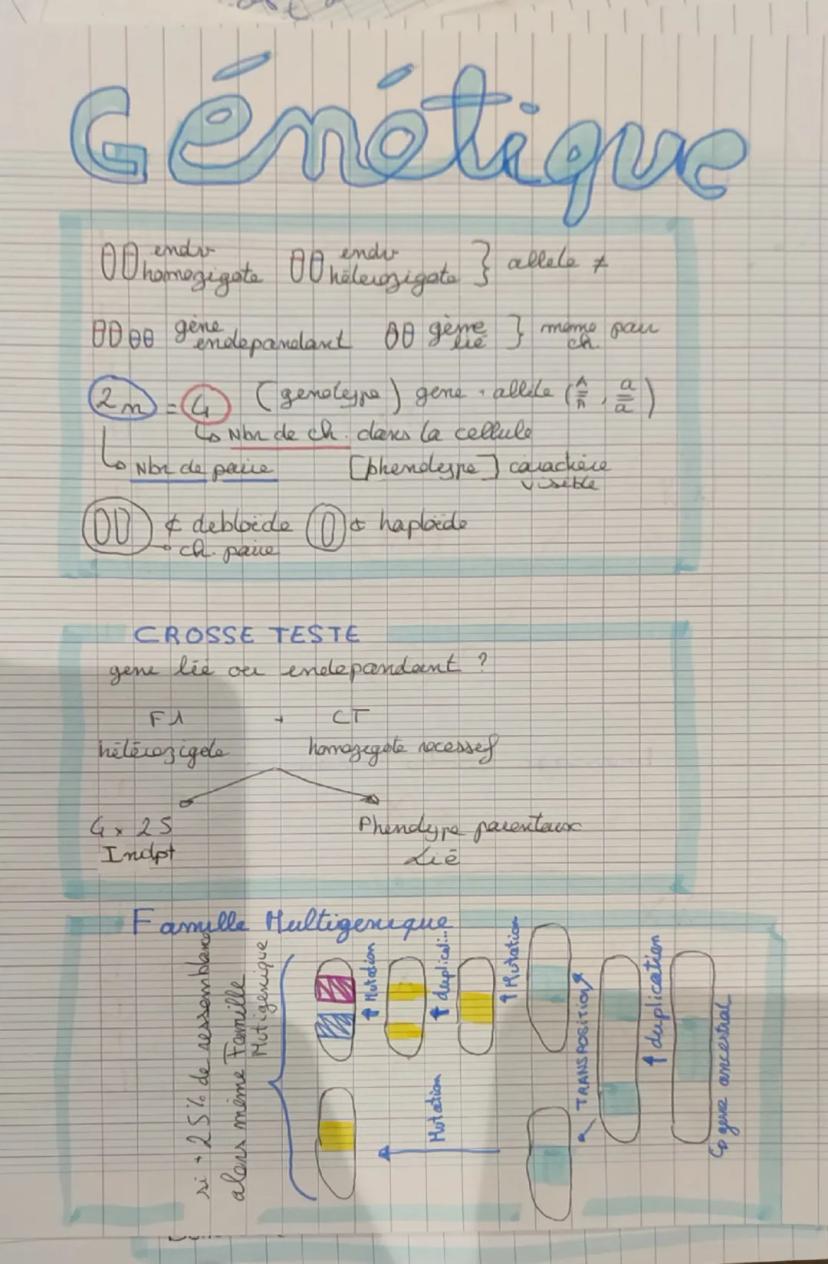 Génétique
endv homozigote endv héterozigote } allele ≠
gène endependant gène lié } meme pair ch.
2n = 4 (genotype) gene + allèle (A/A, a/a)
↳ Nbr de ch. dans la cellule
↳ Nbr de paire [phenotype] carachère visible
¢ debloïde ch. paire ¢ haploïde
CROSSE TESTE
gene lié ou endependant ?
F1 + CT
hétérozigote homozigote recessef
4 x 25 Phenotype parentaux
Indpt Lié
Famille Multigenique
si + 25% de ressemblance
alors même Famille
Mutigenique
Mutation
duplicati...
Mutation
Mutation
TRANSPOSITION
duplication
↳ gene ancestral